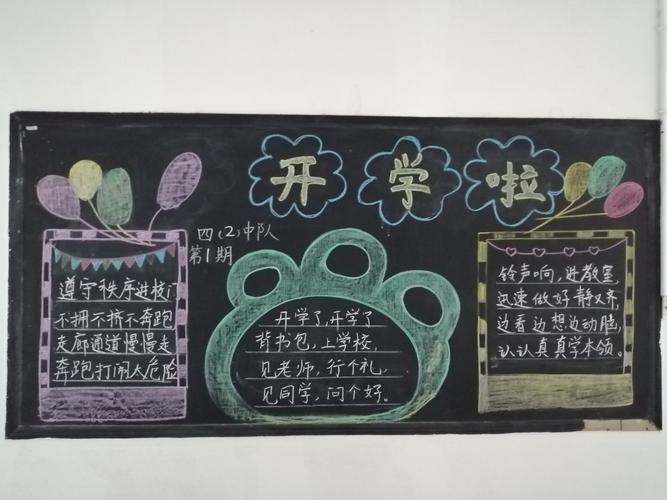 开学啦
四(2)中队
第1期
遵守秩序进校门
不拥不挤不奔跑
走廊通道慢慢走
奔跑打闹太危险
开学了,开学了
背书包,上学校,
见老师,行个礼,
见同学,问个好。
铃声响,进教室,
迅速做好静又齐
边看边想边动脑,
认认真真学本领。